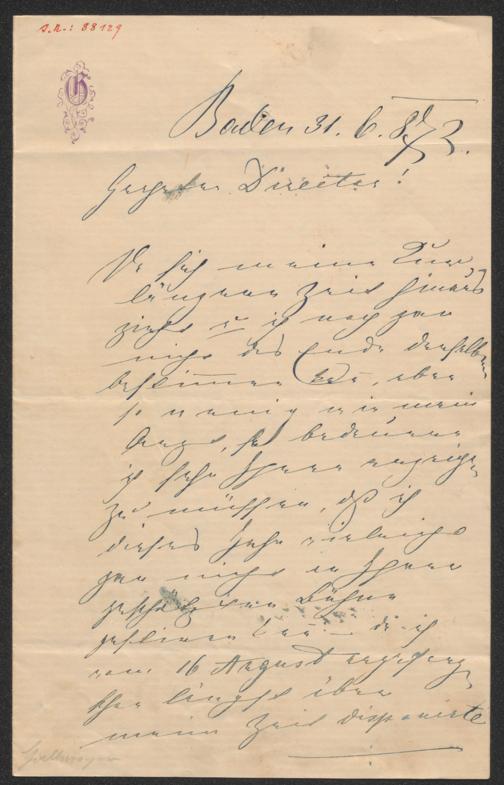 A.N.: 88129
G
Baden 31. 6. 873.
Geehrter Director!
Da sich meine Cur
längere Zeit hinaus
zieht u ich noch gar
nicht das Ende derselben
bestimmen kan, eben
so wenig wie mein
Arzt, so bedauere
ich sehr Ihnen anzeigen
zu müssen, daß ich
dieses Jahr vielleicht
gar nicht in Ihrem
geschätzten Bühne
gastieren kan – da ich
vom 16 August
schon längst über
meine Zeit disponierte